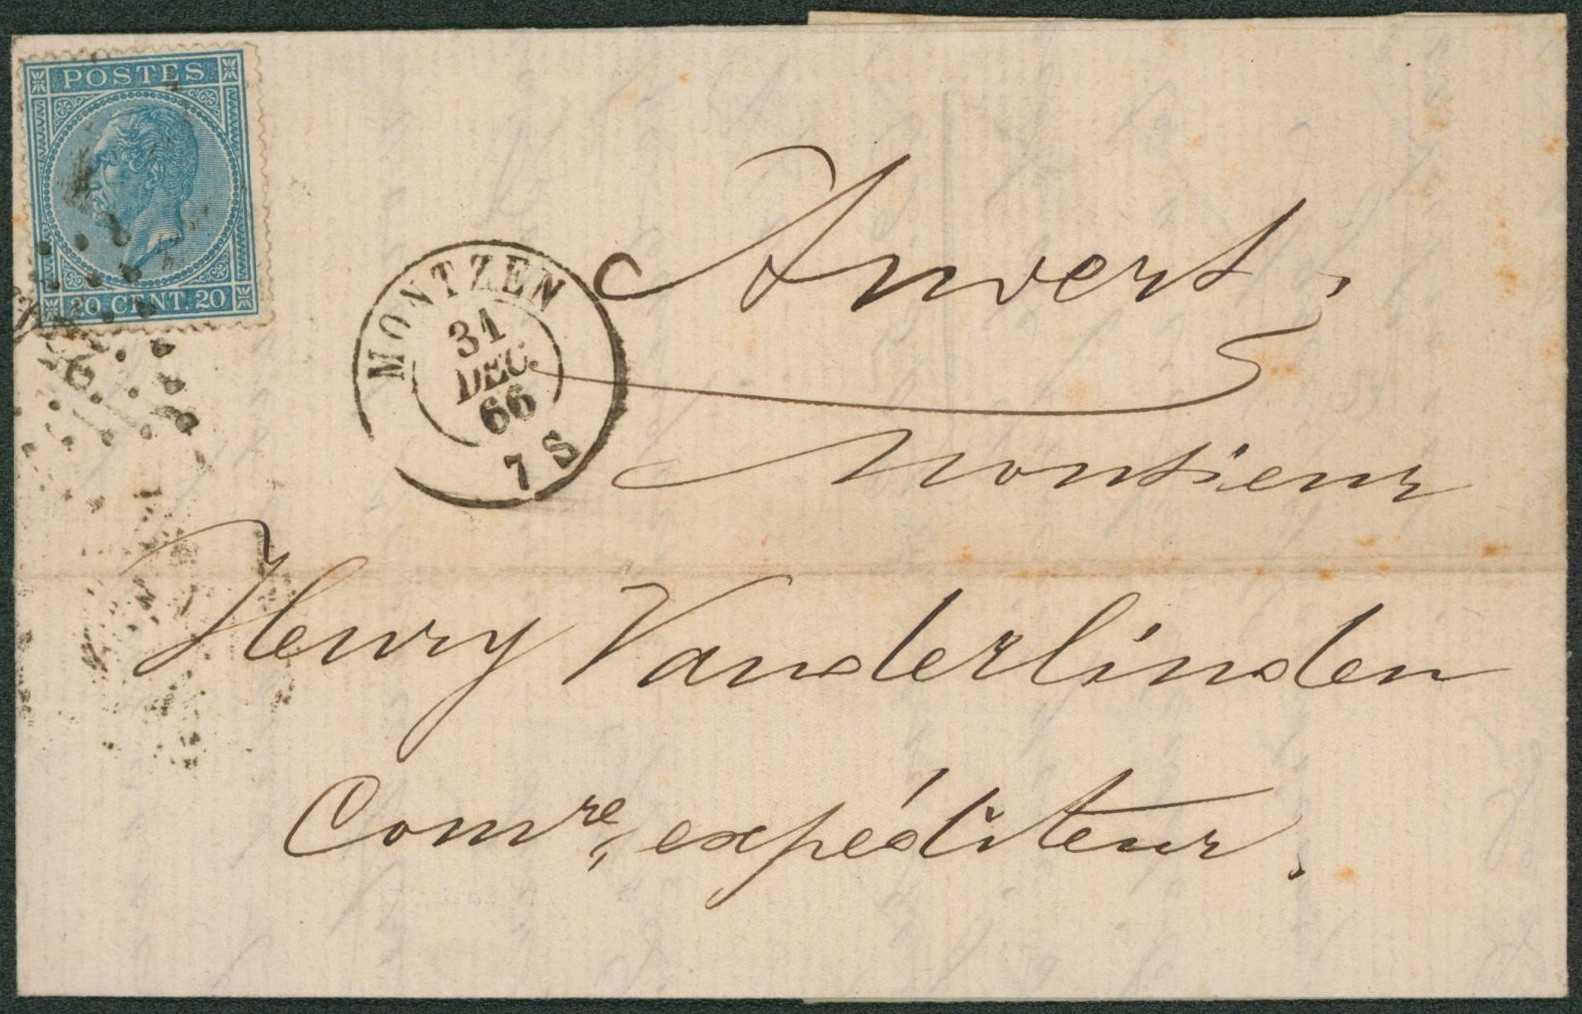 POSTES
20 CENT. 20
MONTZEN
31
DEC.
66
7 S
Anvers,
Monsieur
Henry Vanderlinden
Com^re, expéditeur.